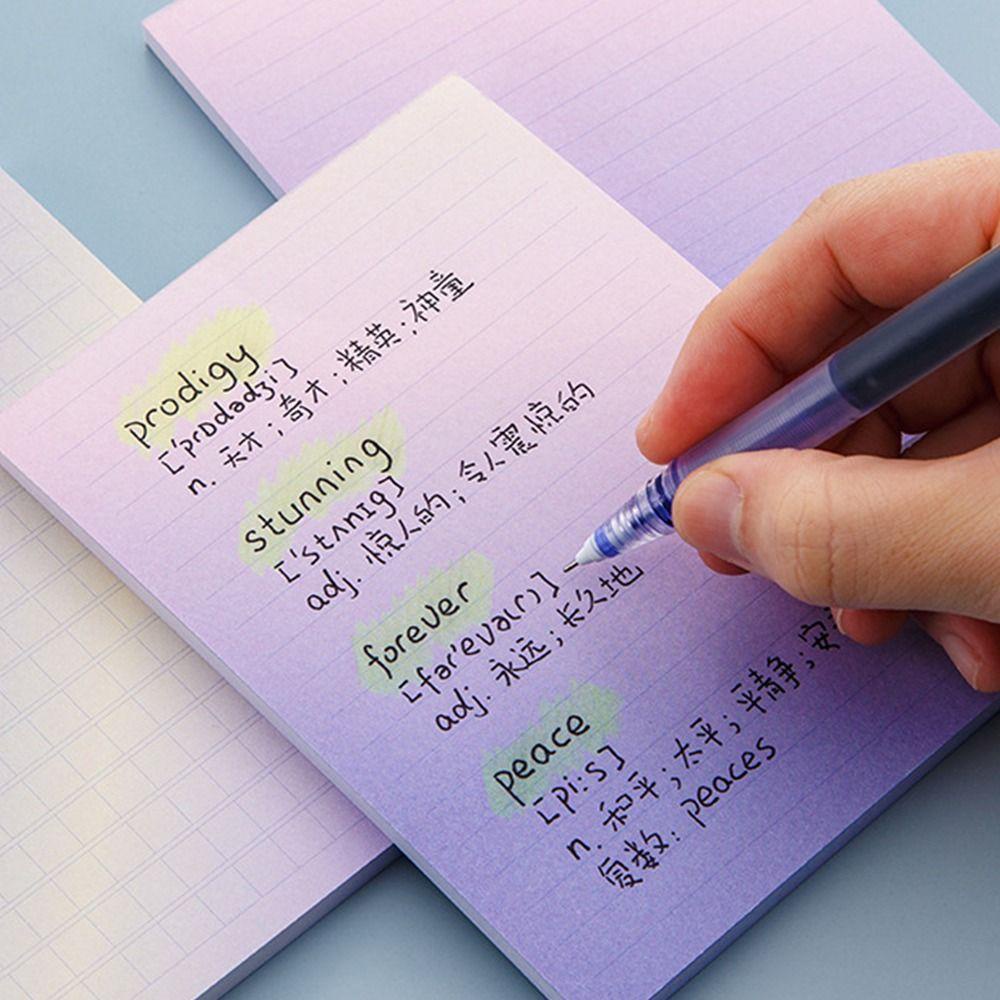 prodigy
['prɒdədʒi]
n. 天才；奇才；精英；神童
stunning
['stʌnɪg]
adj. 惊人的；令人震惊的
forever
[fər'evə(r)]
adj. 永远；长久地
peace
[pi:s]
n. 和平；太平；平静；安
复数：peaces